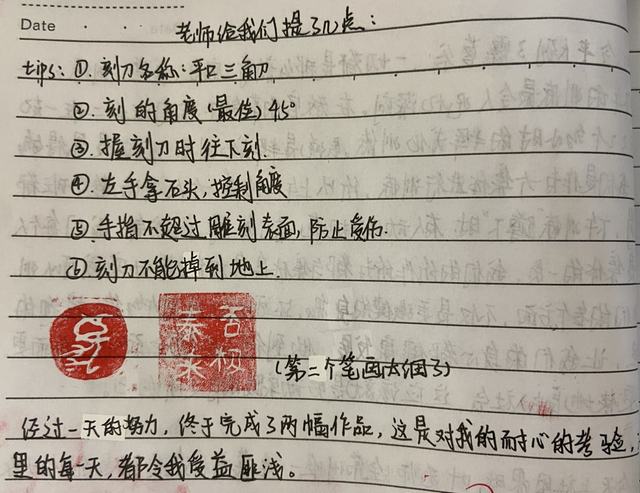 Date
老师给我们提了几点：
tips: ①. 刻刀名称：平口三角刀
②. 刻的角度(最佳) 45°
③. 握刻刀时往下刻.
④. 左手拿石头，控制角度
⑤. 手指不超过雕刻表面，防止受伤.
⑥. 刻刀不能掉到地上.
否极
泰来
(第二个笔画太细了)
经过一天的努力，终于完成了两幅作品，这是对我的耐心的考验，
里的每一天，都令我受益匪浅。